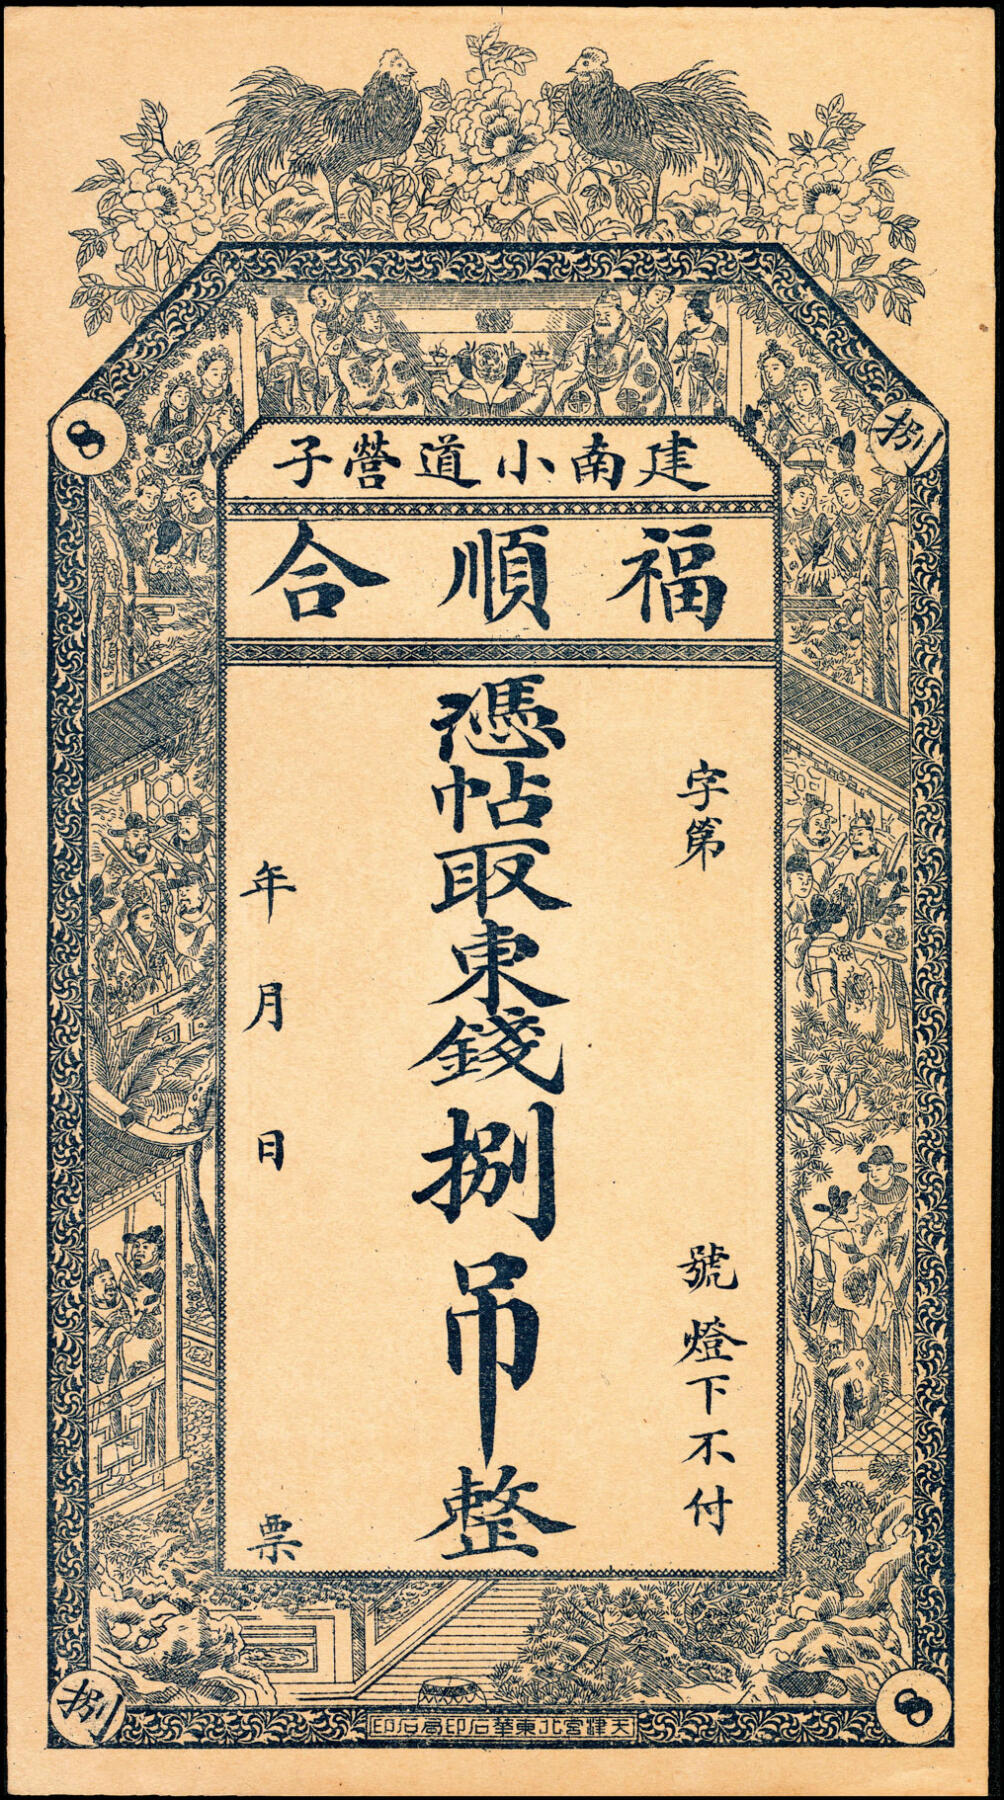 建南小道營子
福順合
字第 號燈下不付
憑帖取東錢捌吊整
年 月 日 票
8
捌
捌
8
天津宮北東華石印局石印